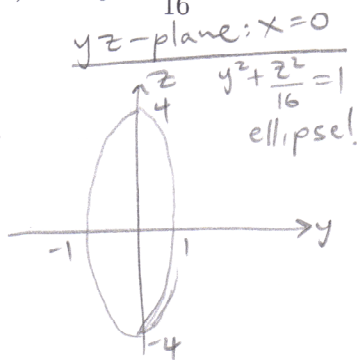 16
yz-plane: x=0
y²+z²/16=1
ellipse!
z
4
-1
1
y
-4